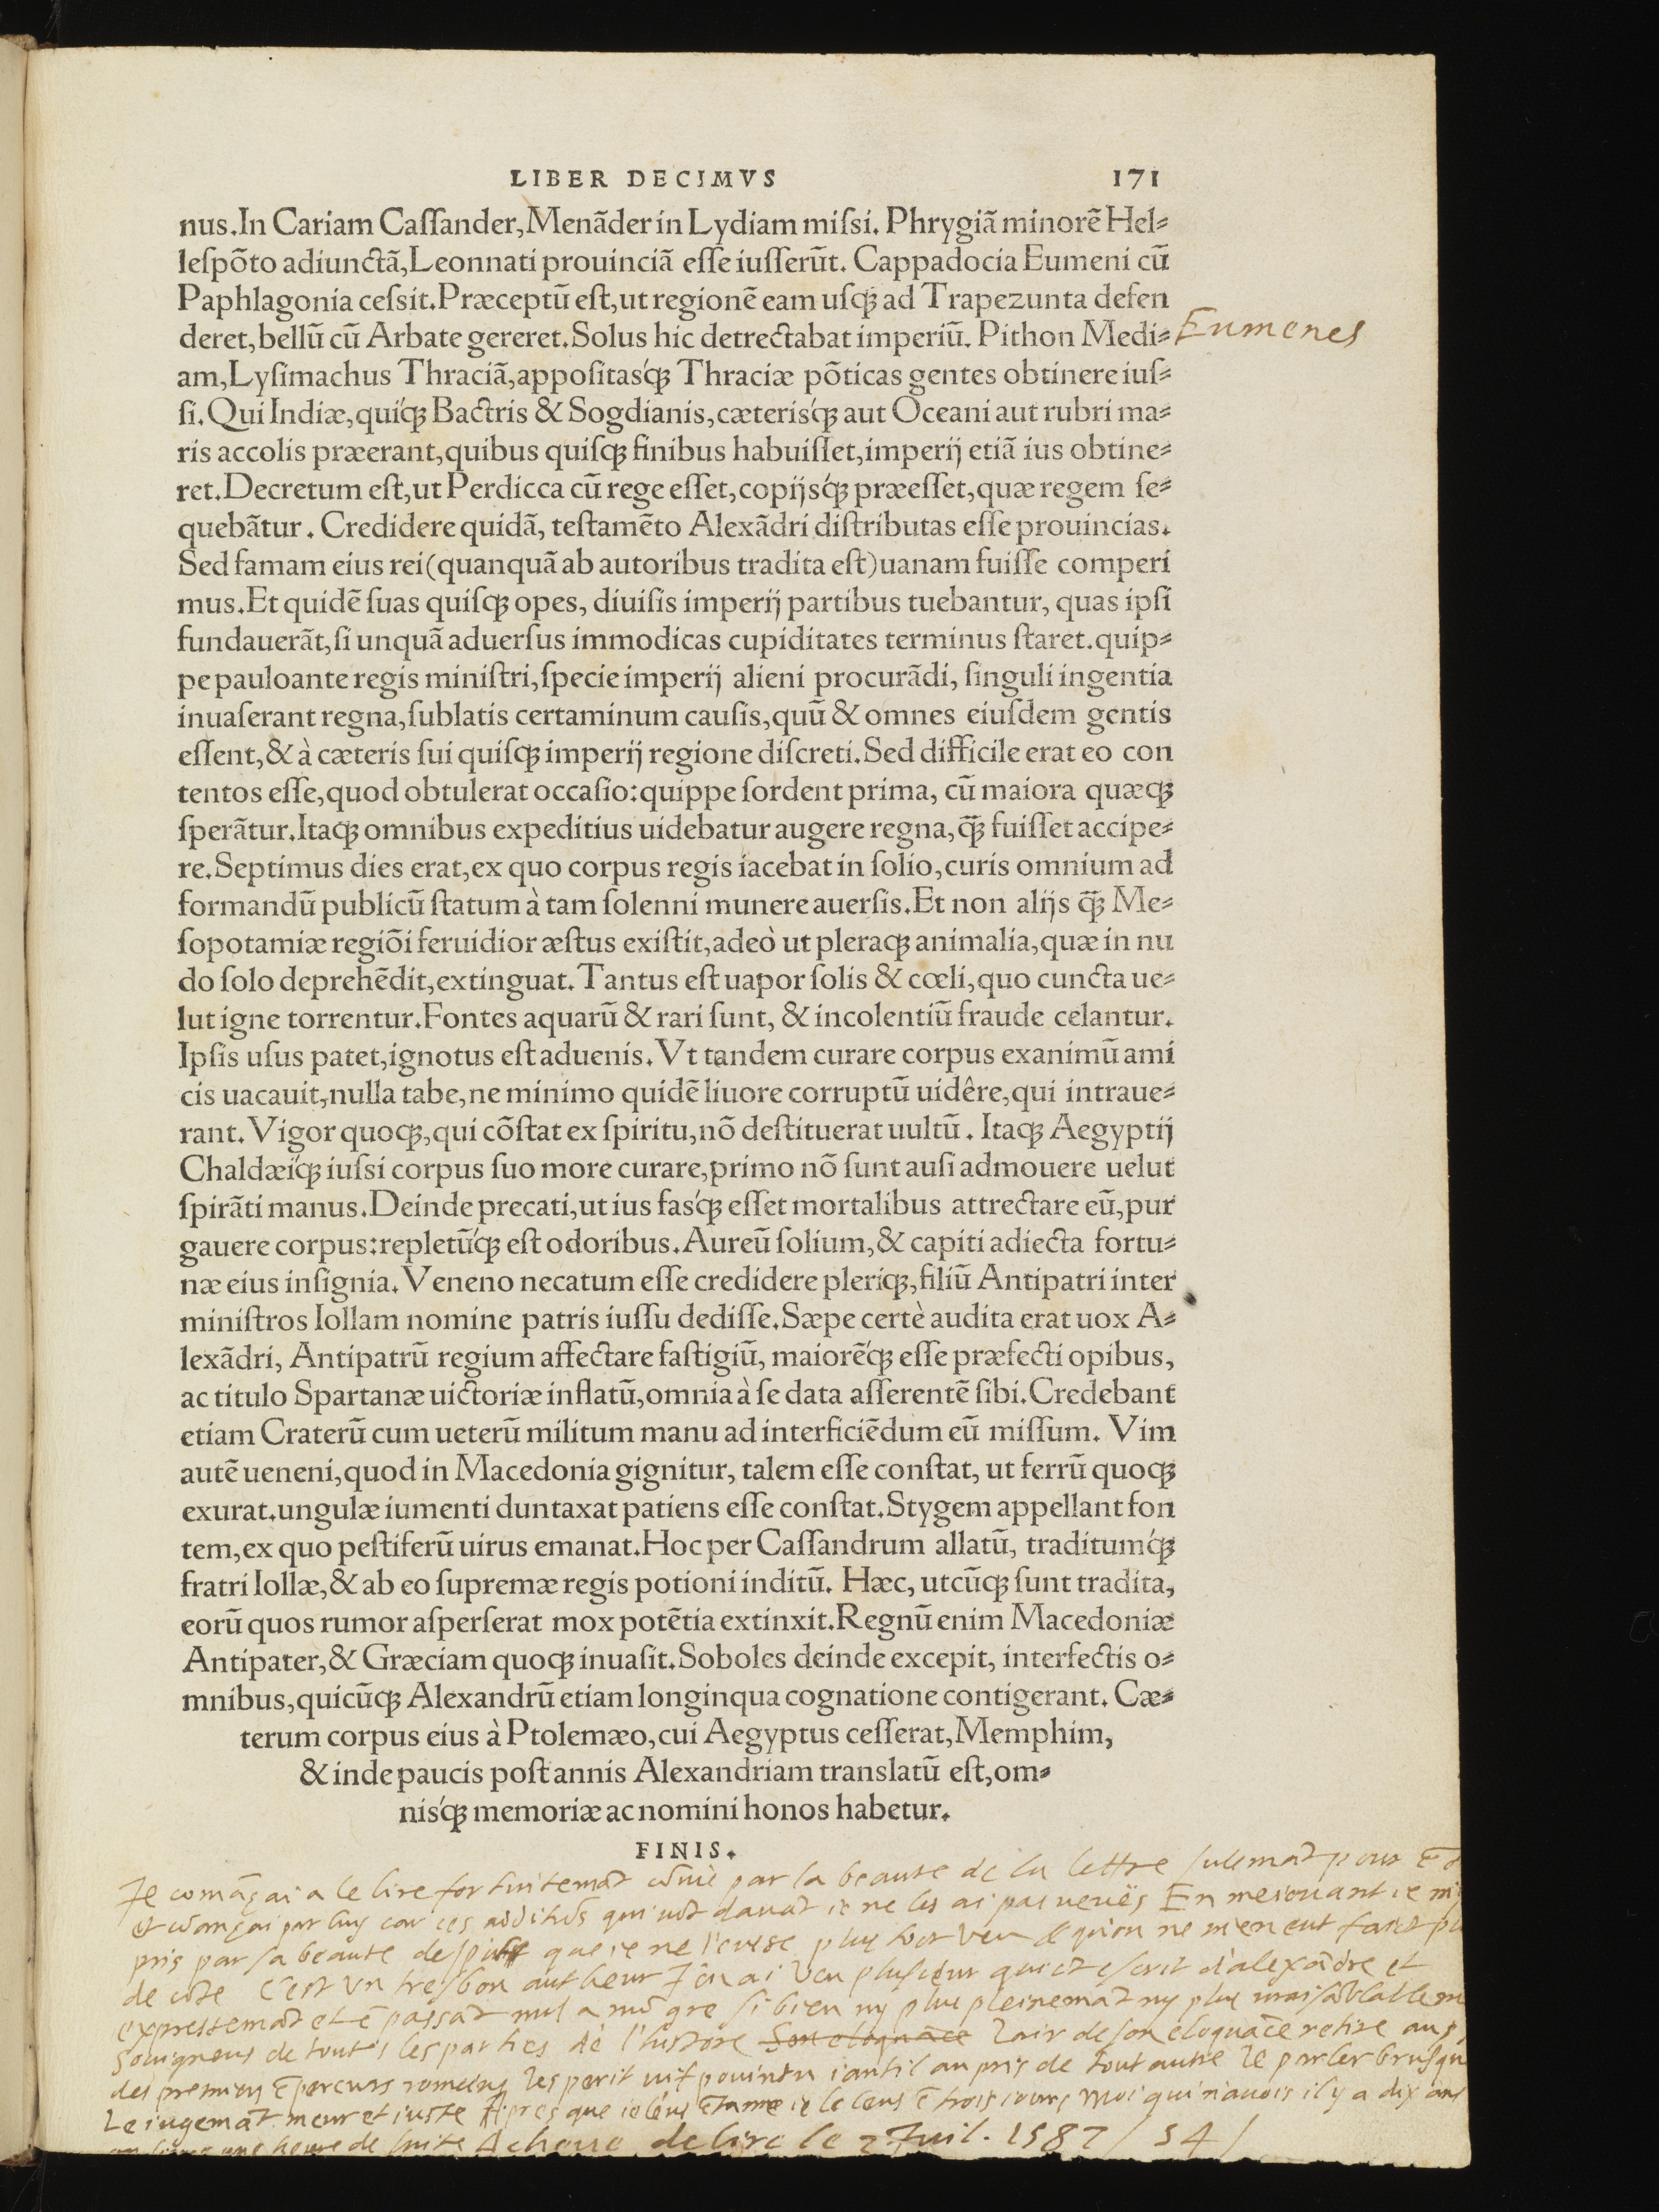 LIBER DECIMVS 171
nus.In Cariam Caſſander,Menãder in Lydiam miſsi. Phrygiã minorẽ Hel⸗
leſpõto adiunctã,Leonnati prouinciã eſſe iuſſerũt. Cappadocia Eumeni cũ
Paphlagonia ceſsit.Præceptũ eſt,ut regionẽ eam uſq; ad Trapezunta defen
deret,bellũ cũ Arbate gereret.Solus hic detrectabat imperiũ. Pithon Medi⸗
Eumenes
am,Lyſimachus Thraciã,appoſitasq́; Thraciæ põticas gentes obtinere iuſ⸗
ſi.Qui Indiæ,quiq́; Bactris & Sogdianis,cæterisq́; aut Oceani aut rubri ma⸗
ris accolis præerant,quibus quiſq; finibus habuiſſet,imperij etiã ius obtine⸗
ret.Decretum eſt,ut Perdicca cũ rege eſſet,copijsq́; præeſſet,quæ regem ſe⸗
quebãtur. Credidere quidã, teſtamẽto Alexãdri diſtributas eſſe prouincias.
Sed famam eius rei(quanquã ab autoribus tradita eſt)uanam fuiſſe comperi
mus.Et quidẽ ſuas quiſq; opes, diuiſis imperij partibus tuebantur, quas ipſi
fundauerãt,ſi unquã aduerſus immodicas cupiditates terminus ſtaret.quip⸗
pe pauloante regis miniſtri,ſpecie imperij alieni procurãdi, ſinguli ingentia
inuaſerant regna,ſublatis certaminum cauſis,quũ & omnes eiuſdem gentis
eſſent,& à cæteris ſui quiſq; imperij regione diſcreti.Sed difficile erat eo con
tentos eſſe,quod obtulerat occaſio:quippe ſordent prima, cũ maiora quæq;
ſperãtur.Itaq; omnibus expeditius uidebatur augere regna,q̃; fuiſſet accipe⸗
re.Septimus dies erat,ex quo corpus regis iacebat in ſolio,curis omnium ad
formandũ publicũ ſtatum à tam ſolenni munere auerſis.Et non alijs q̃; Me⸗
ſopotamiæ regiõi feruidior æſtus exiſtit,adeò ut pleraq; animalia,quæ in nu
do ſolo deprehẽdit,extinguat.Tantus eſt uapor ſolis & cœli,quo cuncta ue⸗
lut igne torrentur.Fontes aquarũ & rari ſunt, & incolentiũ fraude celantur.
Ipſis uſus patet,ignotus eſt aduenis.Vt tandem curare corpus exanimũ ami
cis uacauit,nulla tabe,ne minimo quidẽ liuore corruptũ uidêre,qui intraue⸗
rant.Vigor quoq;,qui cõſtat ex ſpiritu,nõ deſtituerat uultũ. Itaq; Aegyptij
Chaldæiq́; iuſsi corpus ſuo more curare,primo nõ ſunt auſi admouere uelut
ſpirãti manus.Deinde precati,ut ius fasq́; eſſet mortalibus attrectare eũ,pur
gauere corpus:repletũq́; eſt odoribus.Aureũ ſolium,& capiti adiecta fortu⸗
næ eius inſignia.Veneno necatum eſſe credidere pleriq;,filiũ Antipatri inter
miniſtros Iollam nomine patris iuſſu dediſſe.Sæpe certè audita erat uox A⸗
lexãdri, Antipatrũ regium affectare faſtigiũ, maiorẽq́; eſſe præfecti opibus,
ac titulo Spartanæ uictoriæ inflatũ,omnia à ſe data aſſerentẽ ſibi.Credebant
etiam Craterũ cum ueterũ militum manu ad interficiẽdum eũ miſſum. Vim
autẽ ueneni,quod in Macedonia gignitur, talem eſſe conſtat, ut ferrũ quoq;
exurat.ungulæ iumenti duntaxat patiens eſſe conſtat.Stygem appellant fon
tem,ex quo peſtiferũ uirus emanat.Hoc per Caſſandrum allatũ, traditumq́;
fratri Iollæ,& ab eo ſupremæ regis potioni inditũ. Hæc, utcũq; ſunt tradita,
eorũ quos rumor aſperſerat mox potẽtia extinxit.Regnũ enim Macedoniæ
Antipater,& Græciam quoq; inuaſit.Soboles deinde excepit, interfectis o⸗
mnibus,quicũq; Alexandrũ etiam longinqua cognatione contigerant. Cæ⸗
terum corpus eius à Ptolemæo,cui Aegyptus ceſſerat,Memphim,
& inde paucis poſt annis Alexandriam translatũ eſt,om⸗
nisq́; memoriæ ac nomini honos habetur.
FINIS.
Je comãçai a le lire fortuitemãt par la beaute de la lettre sulemãt pour
par luy car ces ie ne les ai pas veues En me iouant ie
pris par sa beaute que ie ne plus tost veu qu'on ne m'en eut faict
de C'est un tresbon autheur J'ẽ ai veu plusieur qui õt escrit d'alexãdre et
expressemãt et ẽ passãt nul a mõ gre si bien ny plus pleinemãt ny plus
souigneus de toutes les parties de l'histoire Son eloquãce l'air de son eloquãce retire aus
des premiers ẽpereurs romeins l'esperit vif pouintu iantil au pris de tout autre le parler brusque
Le iugemãt meur et iuste Apres que ie l'eus ẽtame ie le leus ẽ trois iours Moi qui n'auois il y a dix ans
une heure de suite Acheue de lire le 2 Juil. 1587 / 54 /